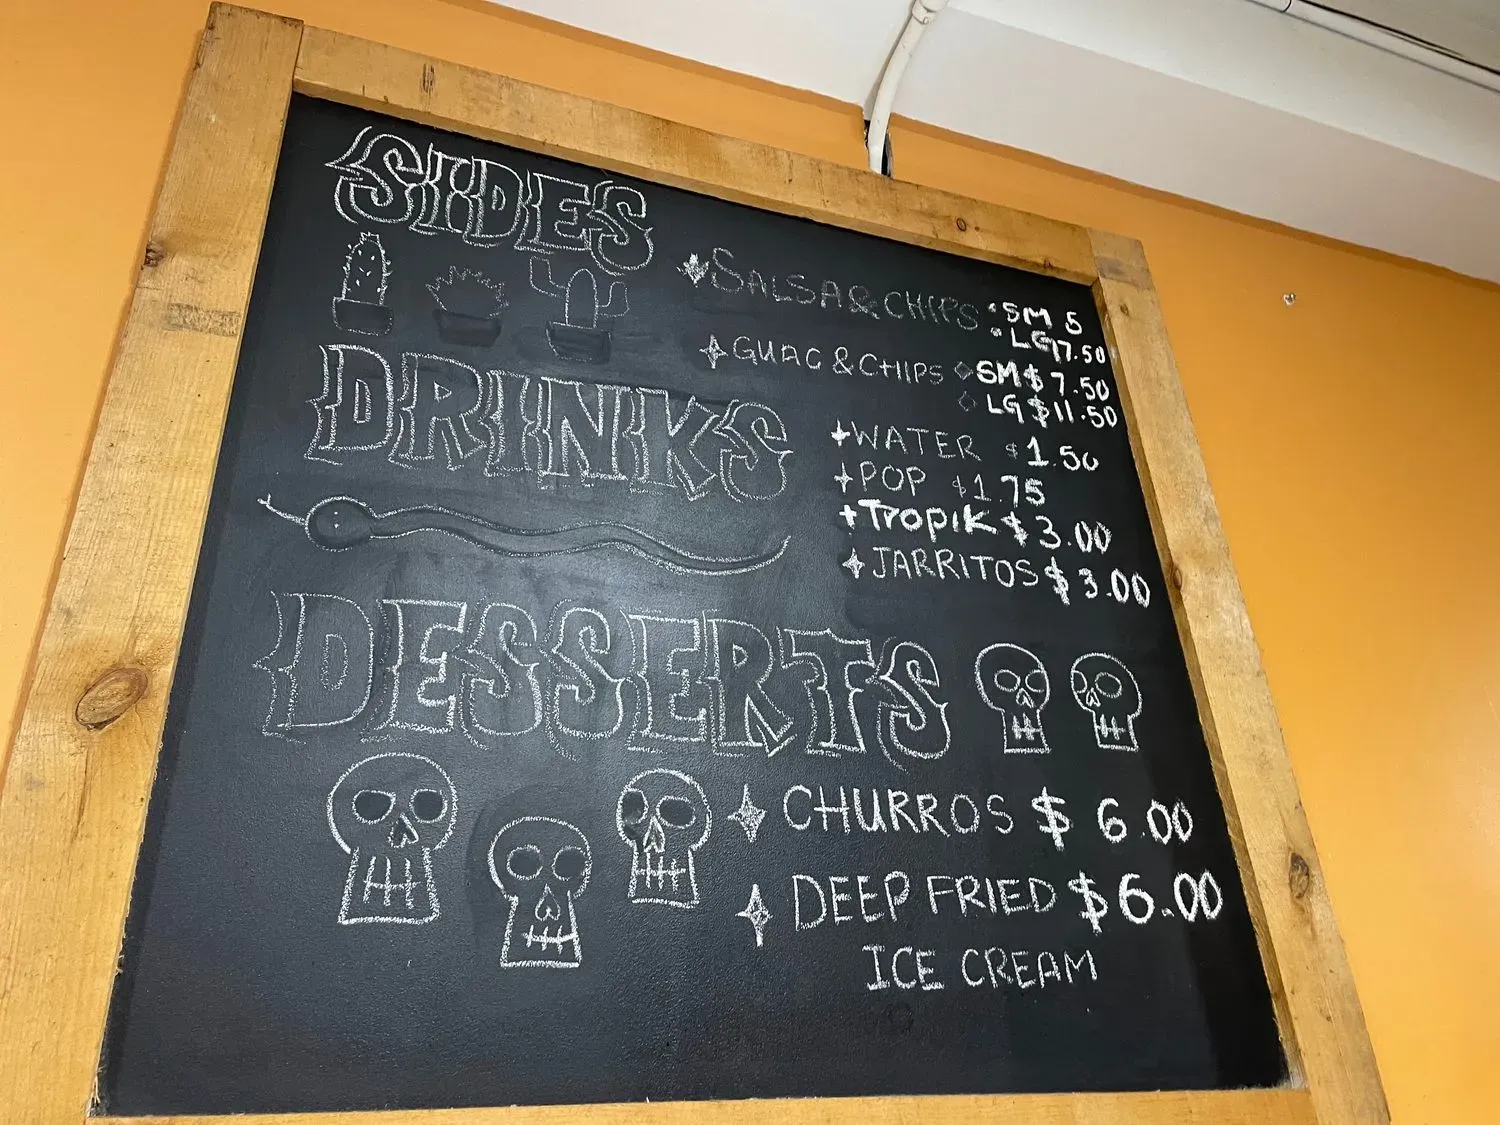 SIDES
SALSA & CHIPS SM 5
LG 17.50
GUAC & CHIPS SM $ 7.50
LG $ 11.50
DRINKS
WATER $1.50
POP $1.75
TropiK $3.00
JARRITOS $3.00
DESSERTS
CHURROS $ 6.00
DEEP FRIED $6.00
ICE CREAM